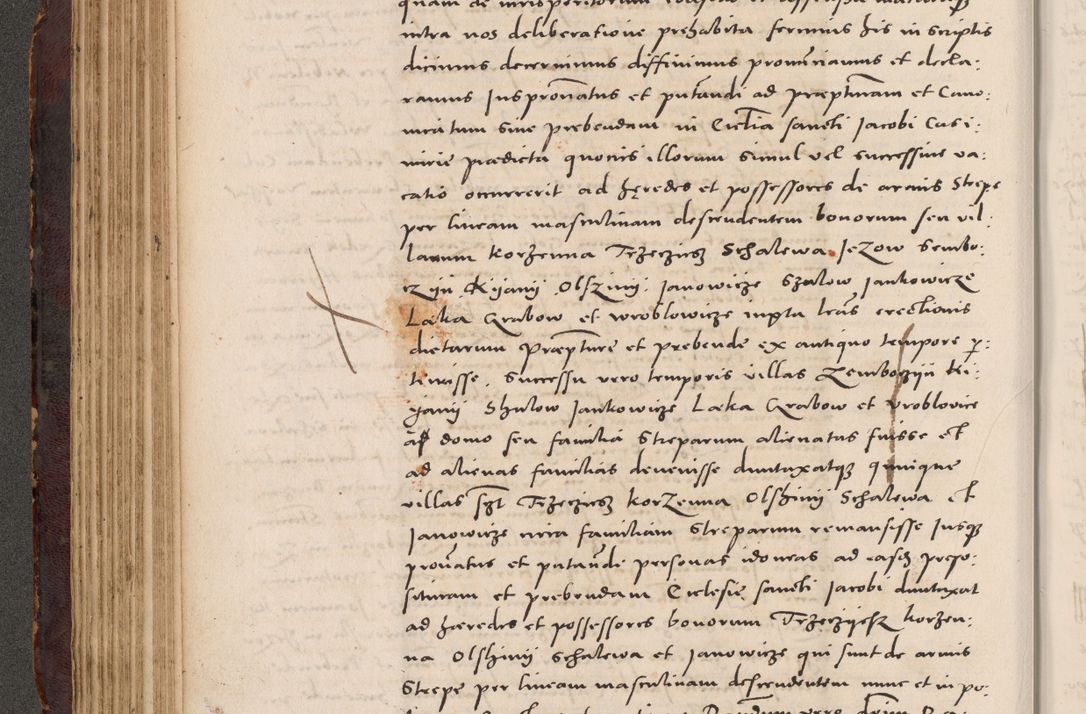 intra nos deliberatione prehabita ferimus his in scriptis
dicimus decernimus diffinimus pronunciamus et decla:
ramus Juspronatus et putandi ad præpturam et Cano:
nicatum sine prebendam in Ecclia sancti Jacobi Casi:
mirie prædicta quocūs illorum simul vel successive va:
catio occurrerit ad hęredes et possessores de armis Strepe
per lineam masculinam descendentem bonorum seu vil:
larum Korzenna Trzeczicz Schalewa Jezow Sembo:
czyn Kyanÿ Olszinÿ Janowicze Szalow Jankowicze
Laka Grabow et Wroblowicze iuxta lras erectionis
dictarum Præpture et prebende ex antiquo tempore p:
tinuisse. Successu vero temporis villas Zemboczyn Ki:
ÿanÿ Shalow Jankowicze Laka Grabow et Wroblovice
a domo seu familia Streparum alienatas fuisse et
ad alienas familias devenisse duntaxatqz quinque
villas szt Trzeczicz Korzenna Olshinÿ Schalewa et
Janowicze circa familiam Streparum remansisse Jusqz
pronatus et putandi personas idoneas ad easdz prepo:
situram et prebendam Ecclesie sancti Jacobi duntaxat
ad hæredes et possessores bonorum Trzeczÿesz Korzen:
na Olshinÿ Schalewa et Janowicze qui sunt de armis
Strepe per lineam masculinam descendentem nunc et in po: